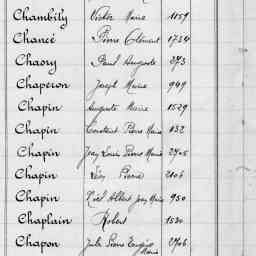 Chambily Victor Marie 1159
Chancé Pierre Clément 1734
Chaory Paul Auguste 273
Chaperon Joseph Marie 949
Chapin Auguste Marie 1529
Chapin Constant Pierre Marie 132
Chapin Jean Louis Pierre Marie 2705
Chapin Léon Pierre 2106
Chapin Noël Albert Jean Marie 950
Chaplain Robert 1530
Chapon Jules Pierre Eugène 2706
Marie